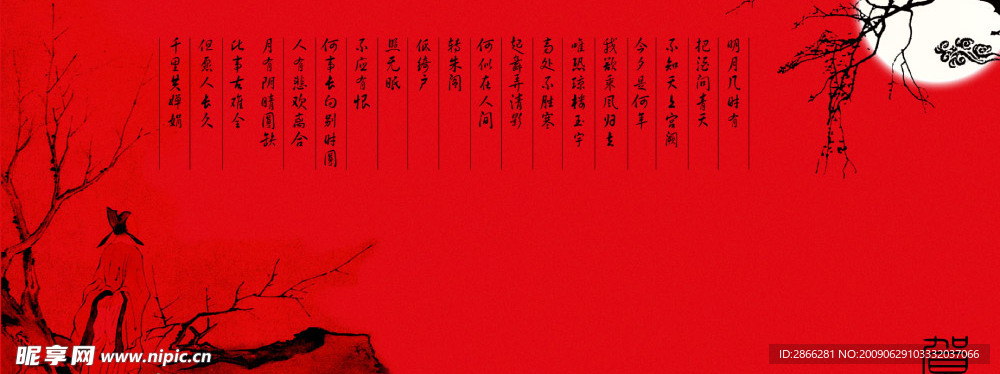 明月几时有
把酒问青天
不知天上宫阙
今夕是何年
我欲乘风归去
唯恐琼楼玉宇
高处不胜寒
起舞弄清影
何似在人间
转朱阁
低绮户
照无眠
不应有恨
何事长向别时圆
人有悲欢离合
月有阴晴圆缺
此事古难全
但愿人长久
千里共婵娟
昵享网 www.nipic.cn
ID:2866281 NO:20090629103332037066